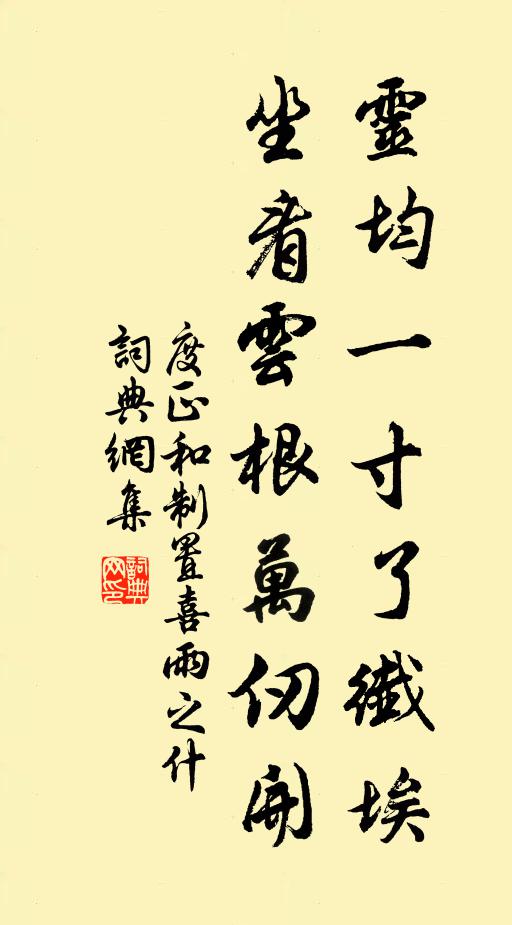 靈均一寸了纖埃
坐看雲根萬仞開
度正和制置喜雨之什
詞典網集
詞典网印